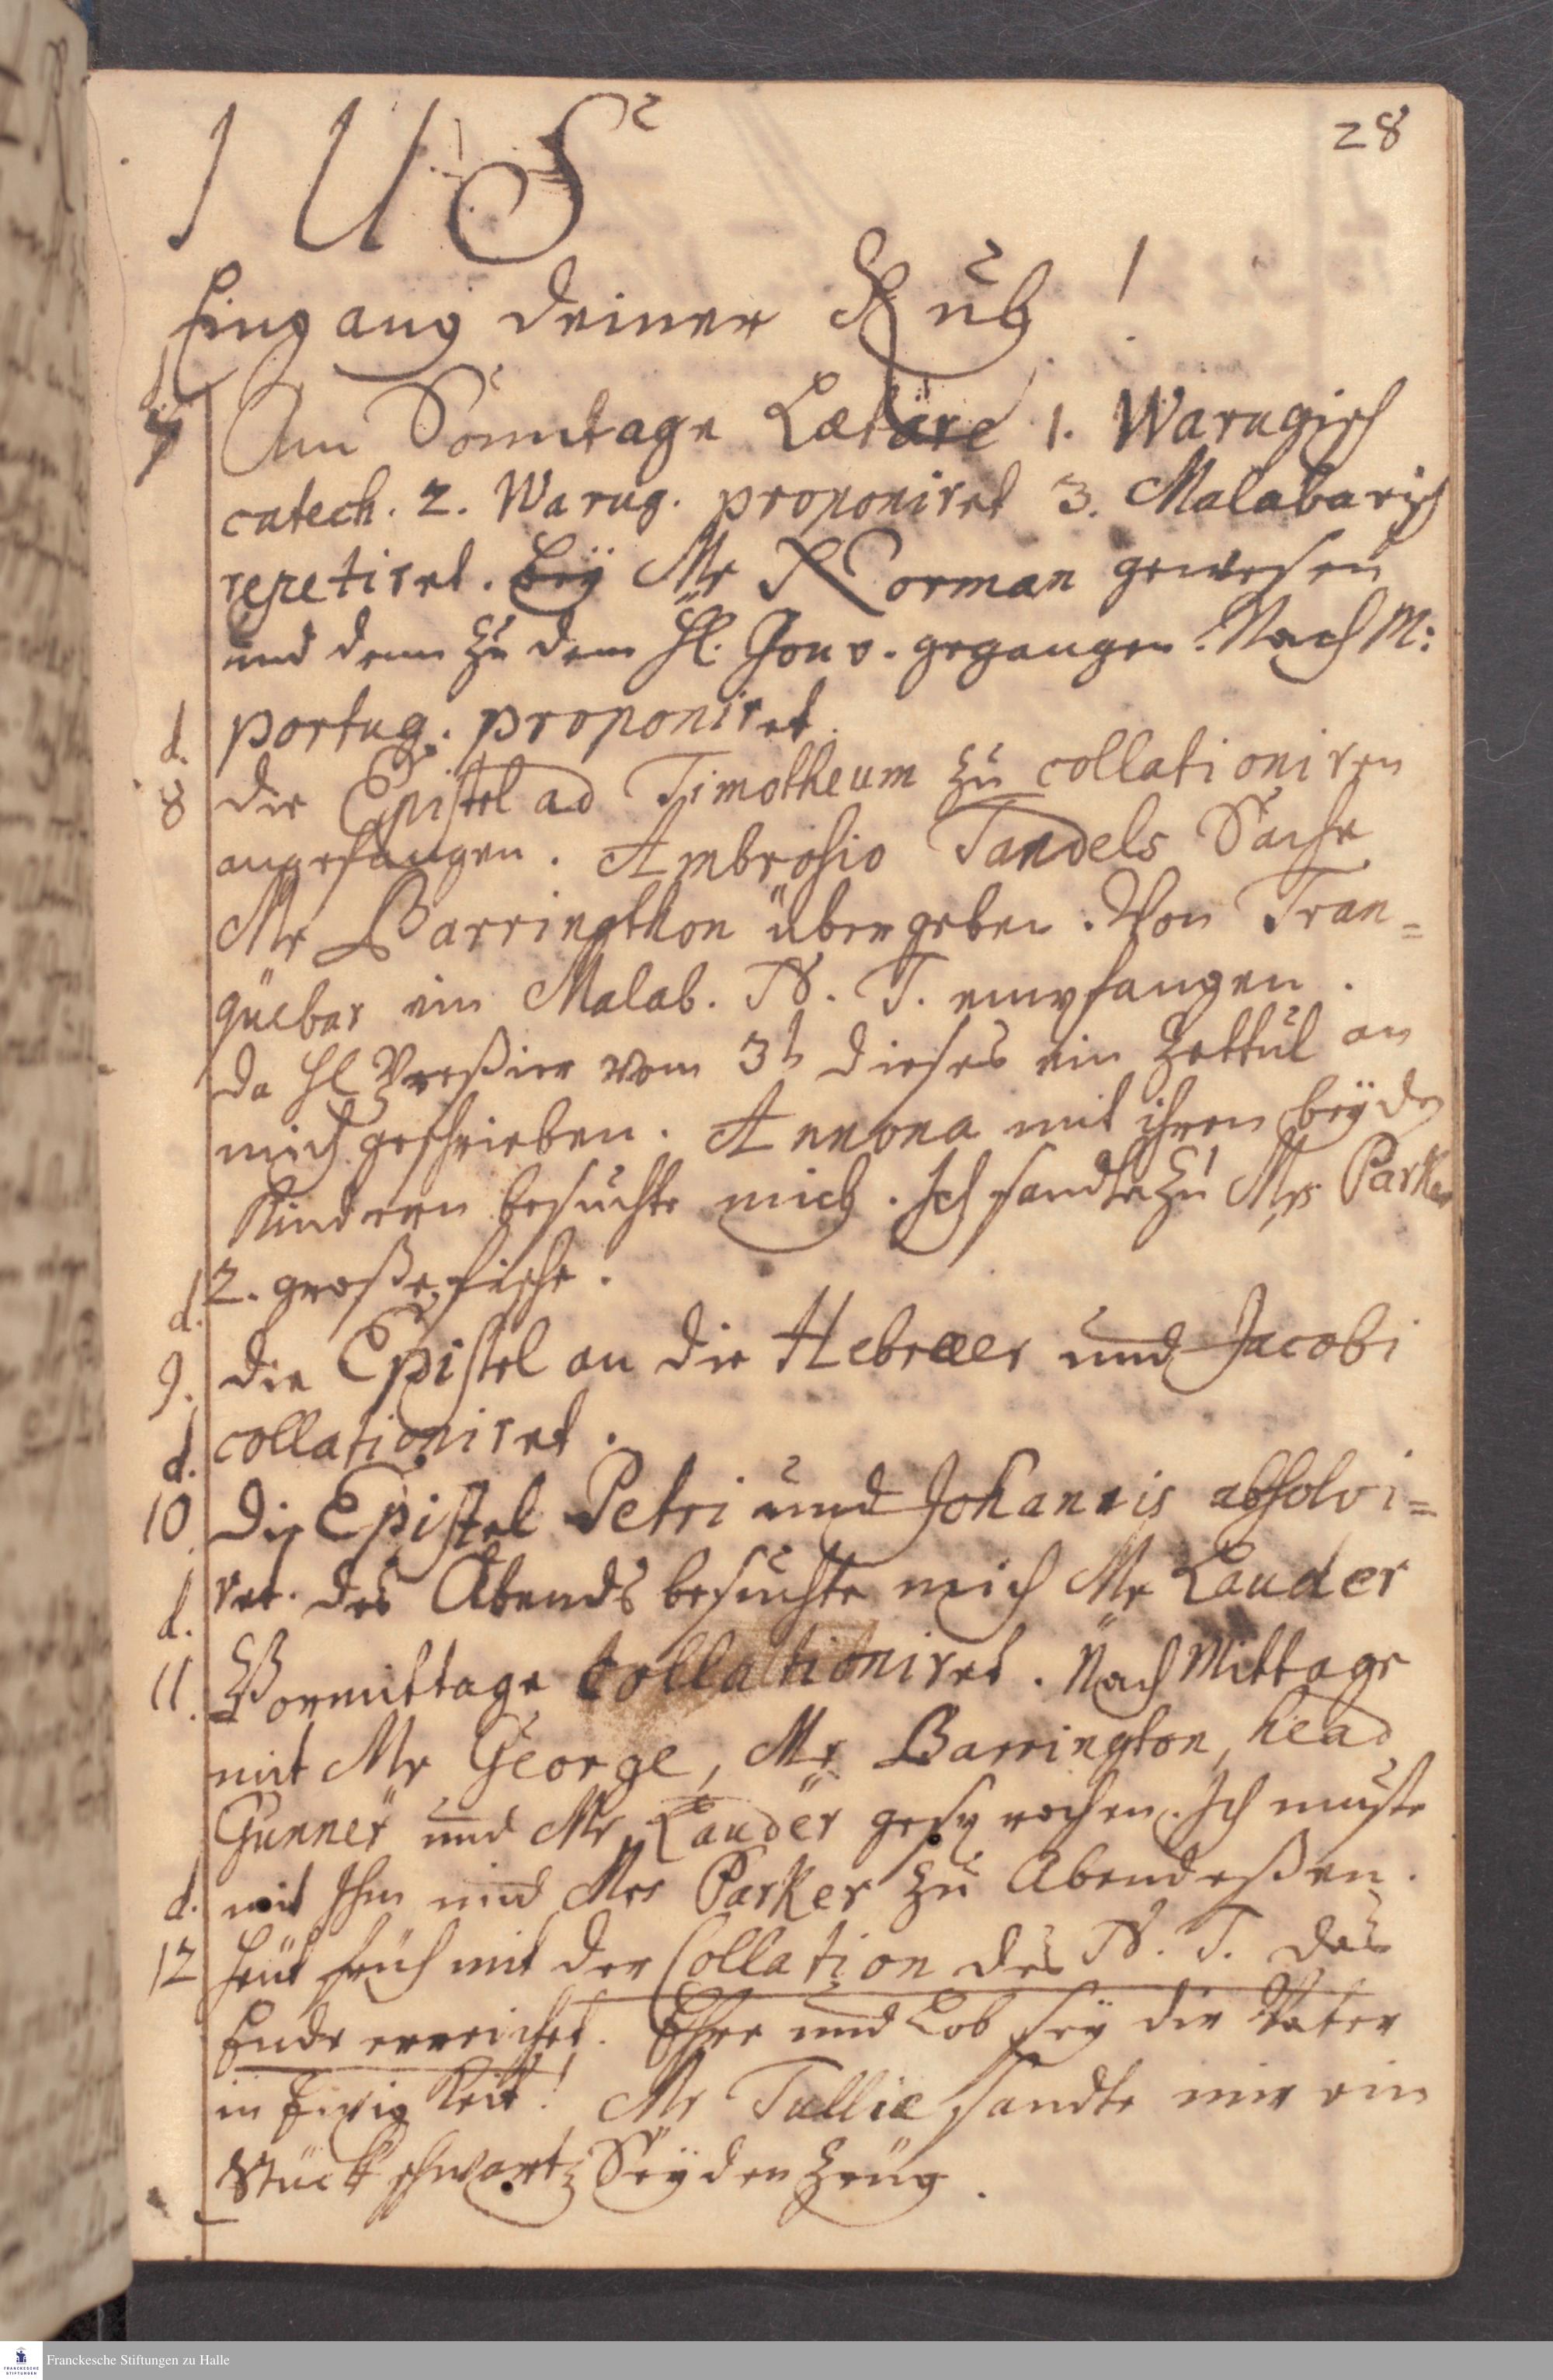 28
I U S
Eingang deiner Ruh!
d.
7 Am Sonntage Lætare 1. Warugisch
catech. 2. Warug. proponiret 3. Malabarisch
repetiret. bey Mr Norman gewesen
und denn zu dem H. Gouv. gegangen. Nach M:
portug. proponiret.
d.
8 die Epistel ad Timotheum zu collationiren
angefangen. Ambrosio Tandels Sache
Mr Barringthon übergeben. Von Tran=
guebar ein Malab. N. T. empfangen.
da H Preßier vom 3t dieses ein Zettul an
mich geschrieben. Annona mit ihren beyden
Kindern besuchte mich. Ich sandte zu Mrs Parker
2. große fische.
d.
9. die Epistel an die Hebræer und Jacobi
collationiret.
d.
10 die Epistel Petri und Johannis absolvi=
ret. des Abends besuchte mich Mr Lauder
d.
11. Vormittage collationiret. Nach Mittage
mit Mr George, Mr Barrington, head
Gunner und Mr Lauder gesprochen. Ich muste
mit Ihm und Mrs Parker zu Abend eßen.
d.
12 heut früh mit der Collation des N. T. das
Ende erreichet. Ehre und Lob sey dir Vater
in Ewigkeit! Mr Tullie sandte mir ein
Stück schwartz Seyden Zeug.
FRANCKESCHE STIFTUNGEN
Franckesche Stiftungen zu Halle